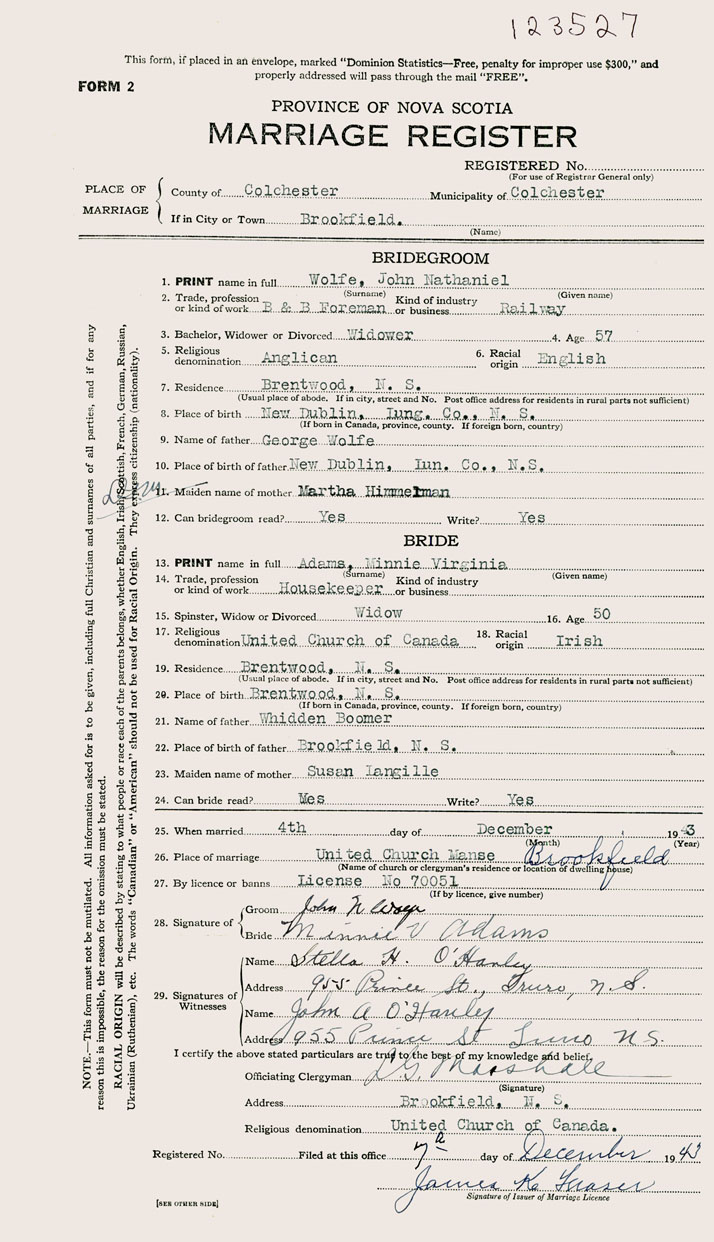 123527
This form, if placed in an envelope, marked "Dominion Statistics—Free, penalty for improper use $300," and
properly addressed will pass through the mail "FREE".
FORM 2
PROVINCE OF NOVA SCOTIA
MARRIAGE REGISTER
REGISTERED No.
(For use of Registrar General only)
PLACE OF MARRIAGE
County of Colchester Municipality of Colchester
If in City or Town Brookfield.
(Name)
BRIDEGROOM
1. PRINT name in full Wolfe, John Nathaniel
(Surname) (Given name)
2. Trade, profession or kind of work B & B Foreman Kind of industry or business Railway
3. Bachelor, Widower or Divorced Widower 4. Age 57
5. Religious denomination Anglican 6. Racial origin English
7. Residence Brentwood, N. S.
(Usual place of abode. If in city, street and No. Post office address for residents in rural parts not sufficient)
8. Place of birth New Dublin, Lung. Co., N. S.
(If born in Canada, province, county. If foreign born, country)
9. Name of father George Wolfe
10. Place of birth of father New Dublin, Lun. Co., N.S.
11. Maiden name of mother Martha Himmelman
12. Can bridegroom read? Yes Write? Yes
BRIDE
13. PRINT name in full Adams, Minnie Virginia
(Surname) (Given name)
14. Trade, profession or kind of work Housekeeper Kind of industry or business
15. Spinster, Widow or Divorced Widow 16. Age 50
17. Religious denomination United Church of Canada 18. Racial origin Irish
19. Residence Brentwood, N. S.
(Usual place of abode. If in city, street and No. Post office address for residents in rural parts not sufficient)
20. Place of birth Brentwood, N. S.
(If born in Canada, province, county. If foreign born, country)
21. Name of father Whidden Boomer
22. Place of birth of father Brookfield, N. S.
23. Maiden name of mother Susan Langille
24. Can bride read? Yes Write? Yes
25. When married 4th day of December 1943
(Month) (Year)
26. Place of marriage United Church Manse Brookfield
(Name of church or clergyman's residence or location of dwelling house)
27. By licence or banns License No 70051
(If by licence, give number)
28. Signature of
Groom John N Wolfe
Bride Minnie V Adams
29. Signatures of Witnesses
Name Stella H. O'Hanley
Address 955 Prince St., Truro, N.S.
Name John A O'Hanley
Address 955 Prince St Truro N S.
I certify the above stated particulars are true to the best of my knowledge and belief.
Officiating Clergyman Marshall
(Signature)
Address Brookfield, N. S.
Religious denomination United Church of Canada.
Registered No. Filed at this office 7th day of December 1943
James K. Fraser
Signature of Issuer of Marriage Licence
[SEE OTHER SIDE]
NOTE.—This form must not be mutilated. All information asked for is to be given, including full Christian and surnames of all parties, and if for any
reason this is impossible, the reason for the omission must be stated.
RACIAL ORIGIN will be described by stating to what people or race each of the parents belongs, whether English, Irish, Scottish, French, German, Russian,
Ukrainian (Ruthenian), etc. The words "Canadian" or "American" should not be used for Racial Origin. They express citizenship (nationality).